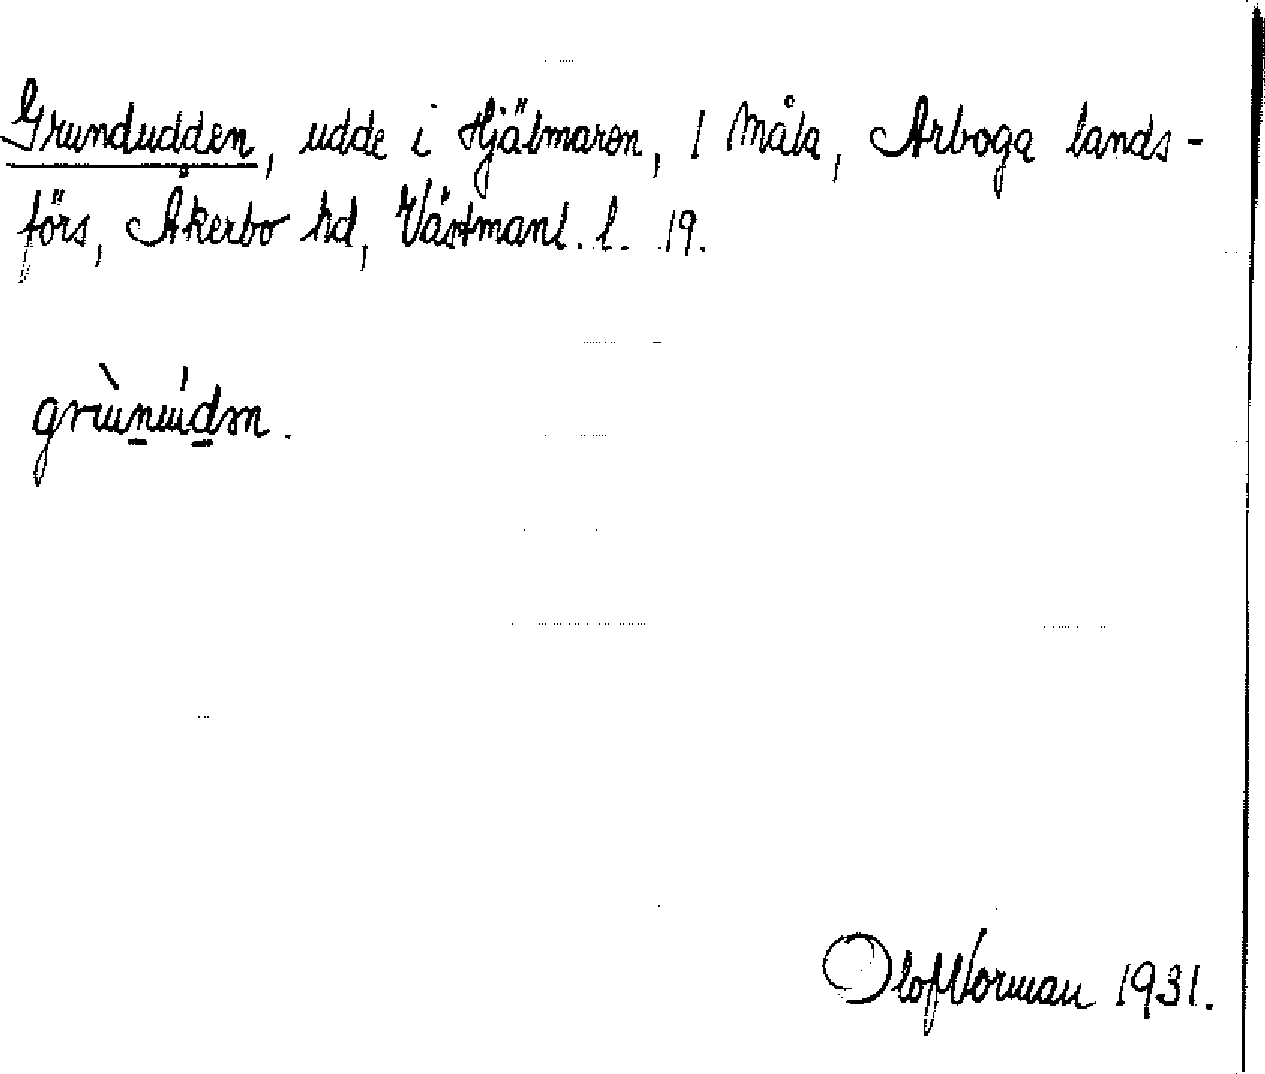 Grundudden, udde i Hjälmaren, 1 Måla, Arboga lands-
förs, Åkerbo hd, Västmanl. l. 19.
grùnúdən.
Olof Norman 1931.